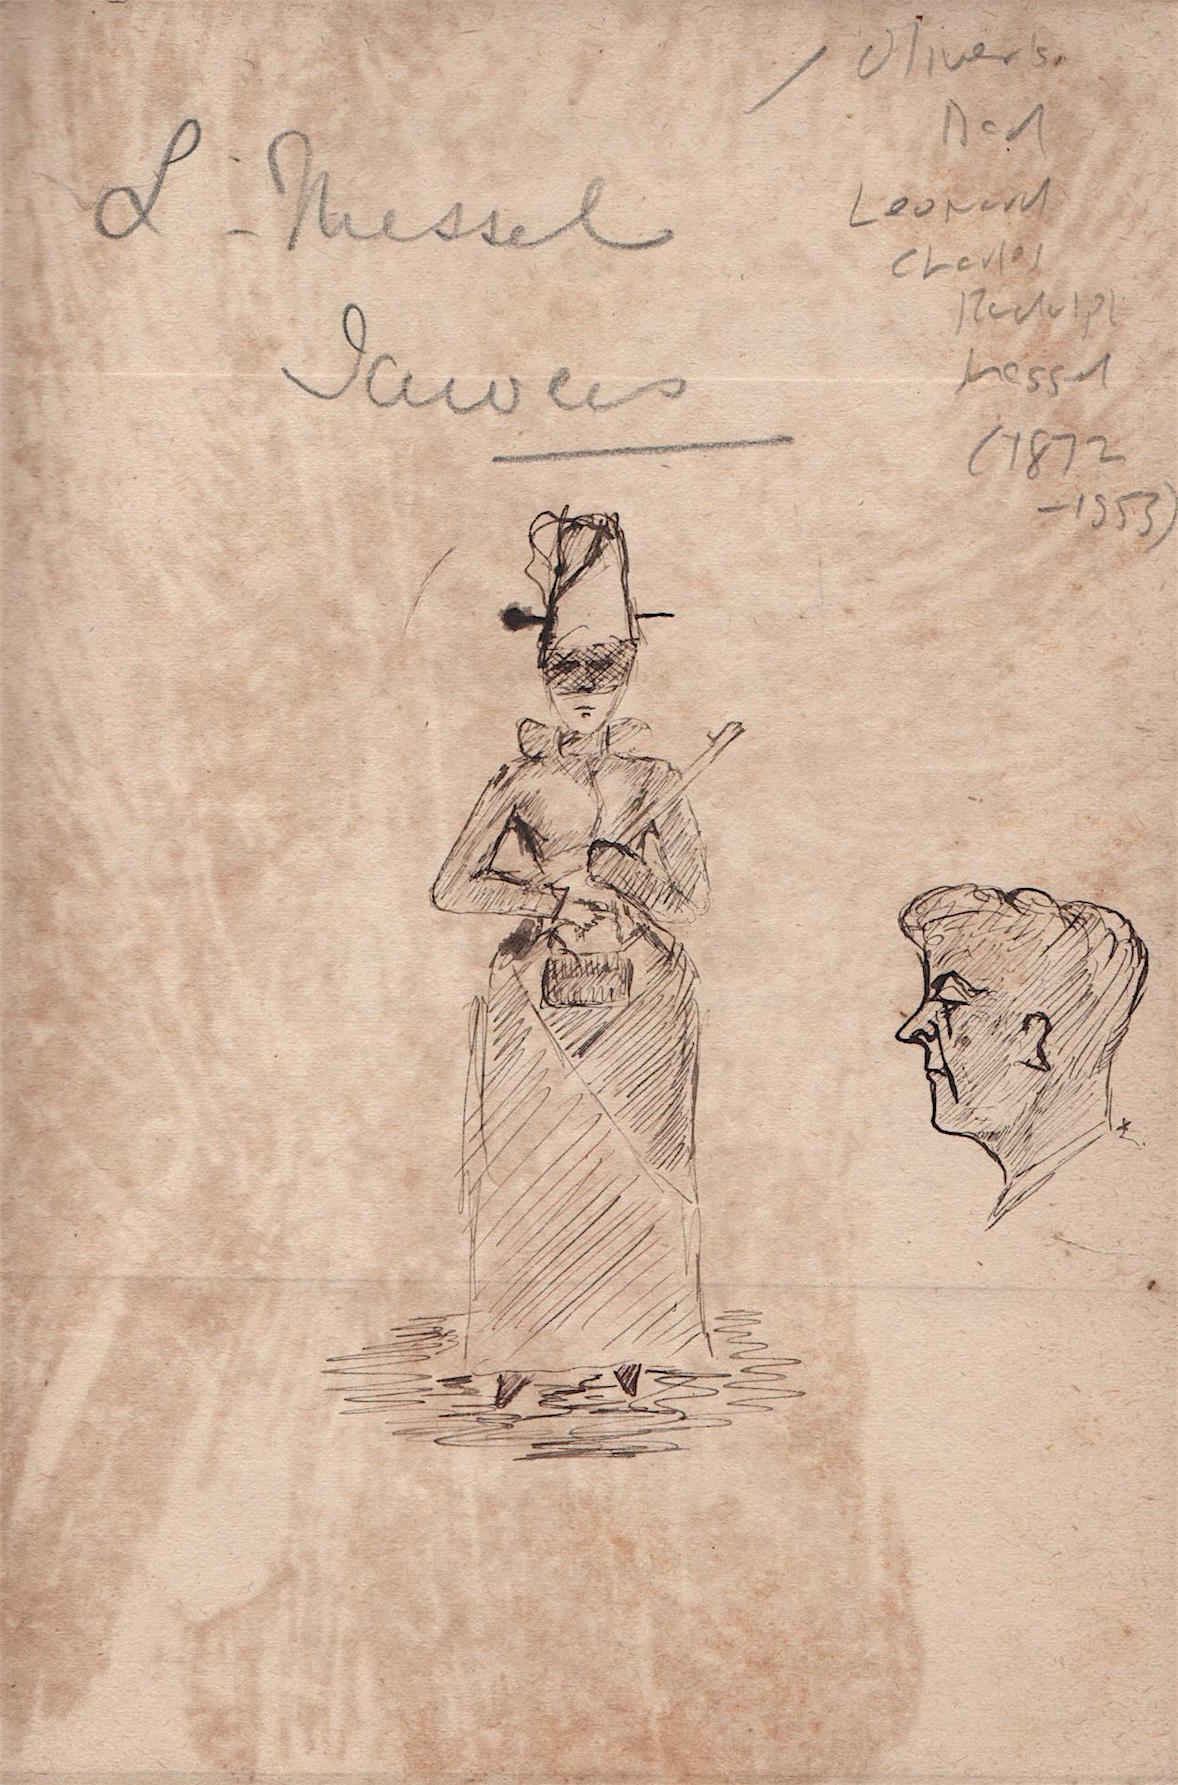 L. Messel
Oliver's
Dad
Leonard
Charles
Rudolph
Messel
(1872
-1953)